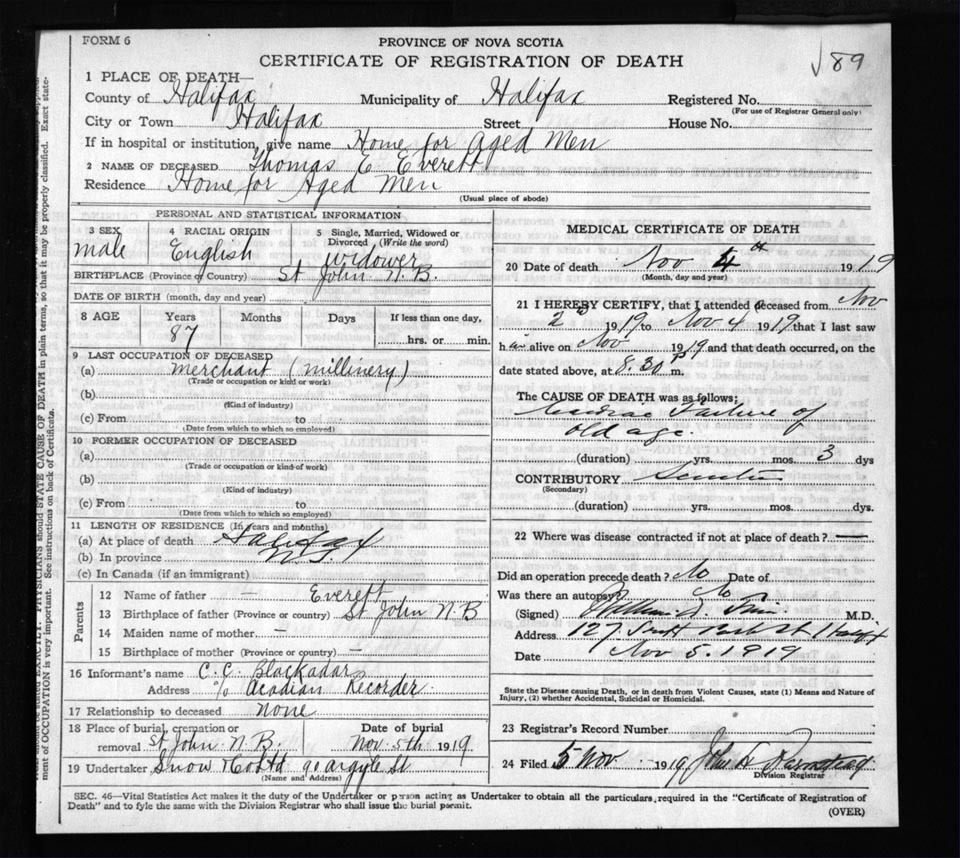 FORM 6
PROVINCE OF NOVA SCOTIA
CERTIFICATE OF REGISTRATION OF DEATH
89
1 PLACE OF DEATH—
County of Halifax Municipality of Halifax Registered No.
(For use of Registrar General only)
City or Town Halifax Street House No.
If in hospital or institution, give name Home for Aged Men
2 NAME OF DECEASED Thomas E Everett
Residence Home for Aged Men
(Usual place of abode)
PERSONAL AND STATISTICAL INFORMATION
3 SEX male
4 RACIAL ORIGIN English
5 Single, Married, Widowed or Divorced (Write the word) widower
BIRTHPLACE (Province or Country) St John N.B.
DATE OF BIRTH (month, day and year)
8 AGE Years 87 Months Days If less than one day, hrs. or min.
9 LAST OCCUPATION OF DECEASED
(a) merchant (millinery)
(Trade or occupation or kind or work)
(b)
(Kind of industry)
(c) From to
(Date from which to which so employed)
10 FORMER OCCUPATION OF DECEASED
(a)
(Trade or occupation or kind of work)
(b)
(Kind of industry)
(c) From to
(Date from which to which so employed)
11 LENGTH OF RESIDENCE (In years and months)
(a) At place of death Halifax
(b) In province N.S.
(c) In Canada (if an immigrant)
Parents
12 Name of father — Everett
13 Birthplace of father (Province or country) St John N B
14 Maiden name of mother —
15 Birthplace of mother (Province or country) —
16 Informant's name C. C. Blackadar
Address % Acadian Recorder
17 Relationship to deceased none
18 Place of burial, cremation or removal St John N.B. Date of burial Nov. 5th 1919
19 Undertaker Snow & Co Ltd 90 Argyle St
(Name and Address)
MEDICAL CERTIFICATE OF DEATH
20 Date of death Nov 4th 1919
(Month, day and year)
21 I HEREBY CERTIFY, that I attended deceased from Nov
2 1919 to Nov 4 1919 that I last saw
h alive on Nov 1919 and that death occurred, on the
date stated above, at 8.30 p m.
The CAUSE OF DEATH was as follows:
Cardiac Failure of
old age.
(duration) yrs. mos. 3 dys
CONTRIBUTORY
(Secondary)
(duration) yrs. mos. dys.
22 Where was disease contracted if not at place of death? —
Did an operation precede death? No Date of
Was there an autopsy? No
(Signed) M.D.
Address 127 Park St
Date Nov 5. 1919
State the Disease causing Death, or in death from Violent Causes, state (1) Means and Nature of
Injury, (2) whether Accidental, Suicidal or Homicidal.
23 Registrar's Record Number
24 Filed 5 Nov 1919
Division Registrar
SEC. 46—Vital Statistics Act makes it the duty of the Undertaker or person acting as Undertaker to obtain all the particulars required in the "Certificate of Registration of
Death" and to fyle the same with the Division Registrar who shall issue the burial permit.
(OVER)